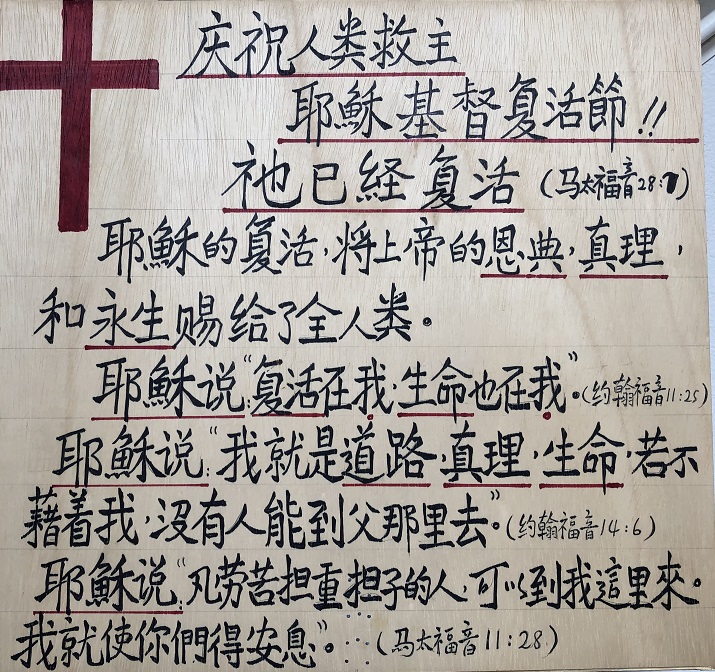 庆祝人类救主
耶稣基督复活節!!
祂已経复活 (马太福音28:7)
耶穌的复活,将上帝的恩典,真理,
和永生赐给了全人类。
耶穌说“复活在我,生命也在我”。(约翰福音11:25)
耶穌说:“我就是道路,真理,生命,若不
藉着我,沒有人能到父那里去”。(约翰福音14:6)
耶穌说“凡劳苦担重担子的人,可以到我這里來。
我就使你們得安息”。(马太福音11:28)